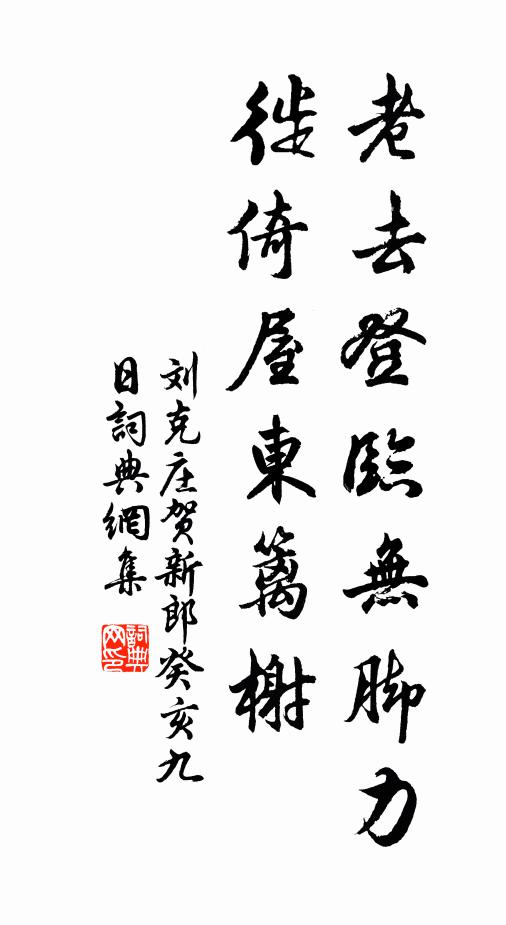 老去登臨無脚力
徙倚屋東籬榭
刘克庄贺新郎癸亥九
日詞典網集
詞典
网印